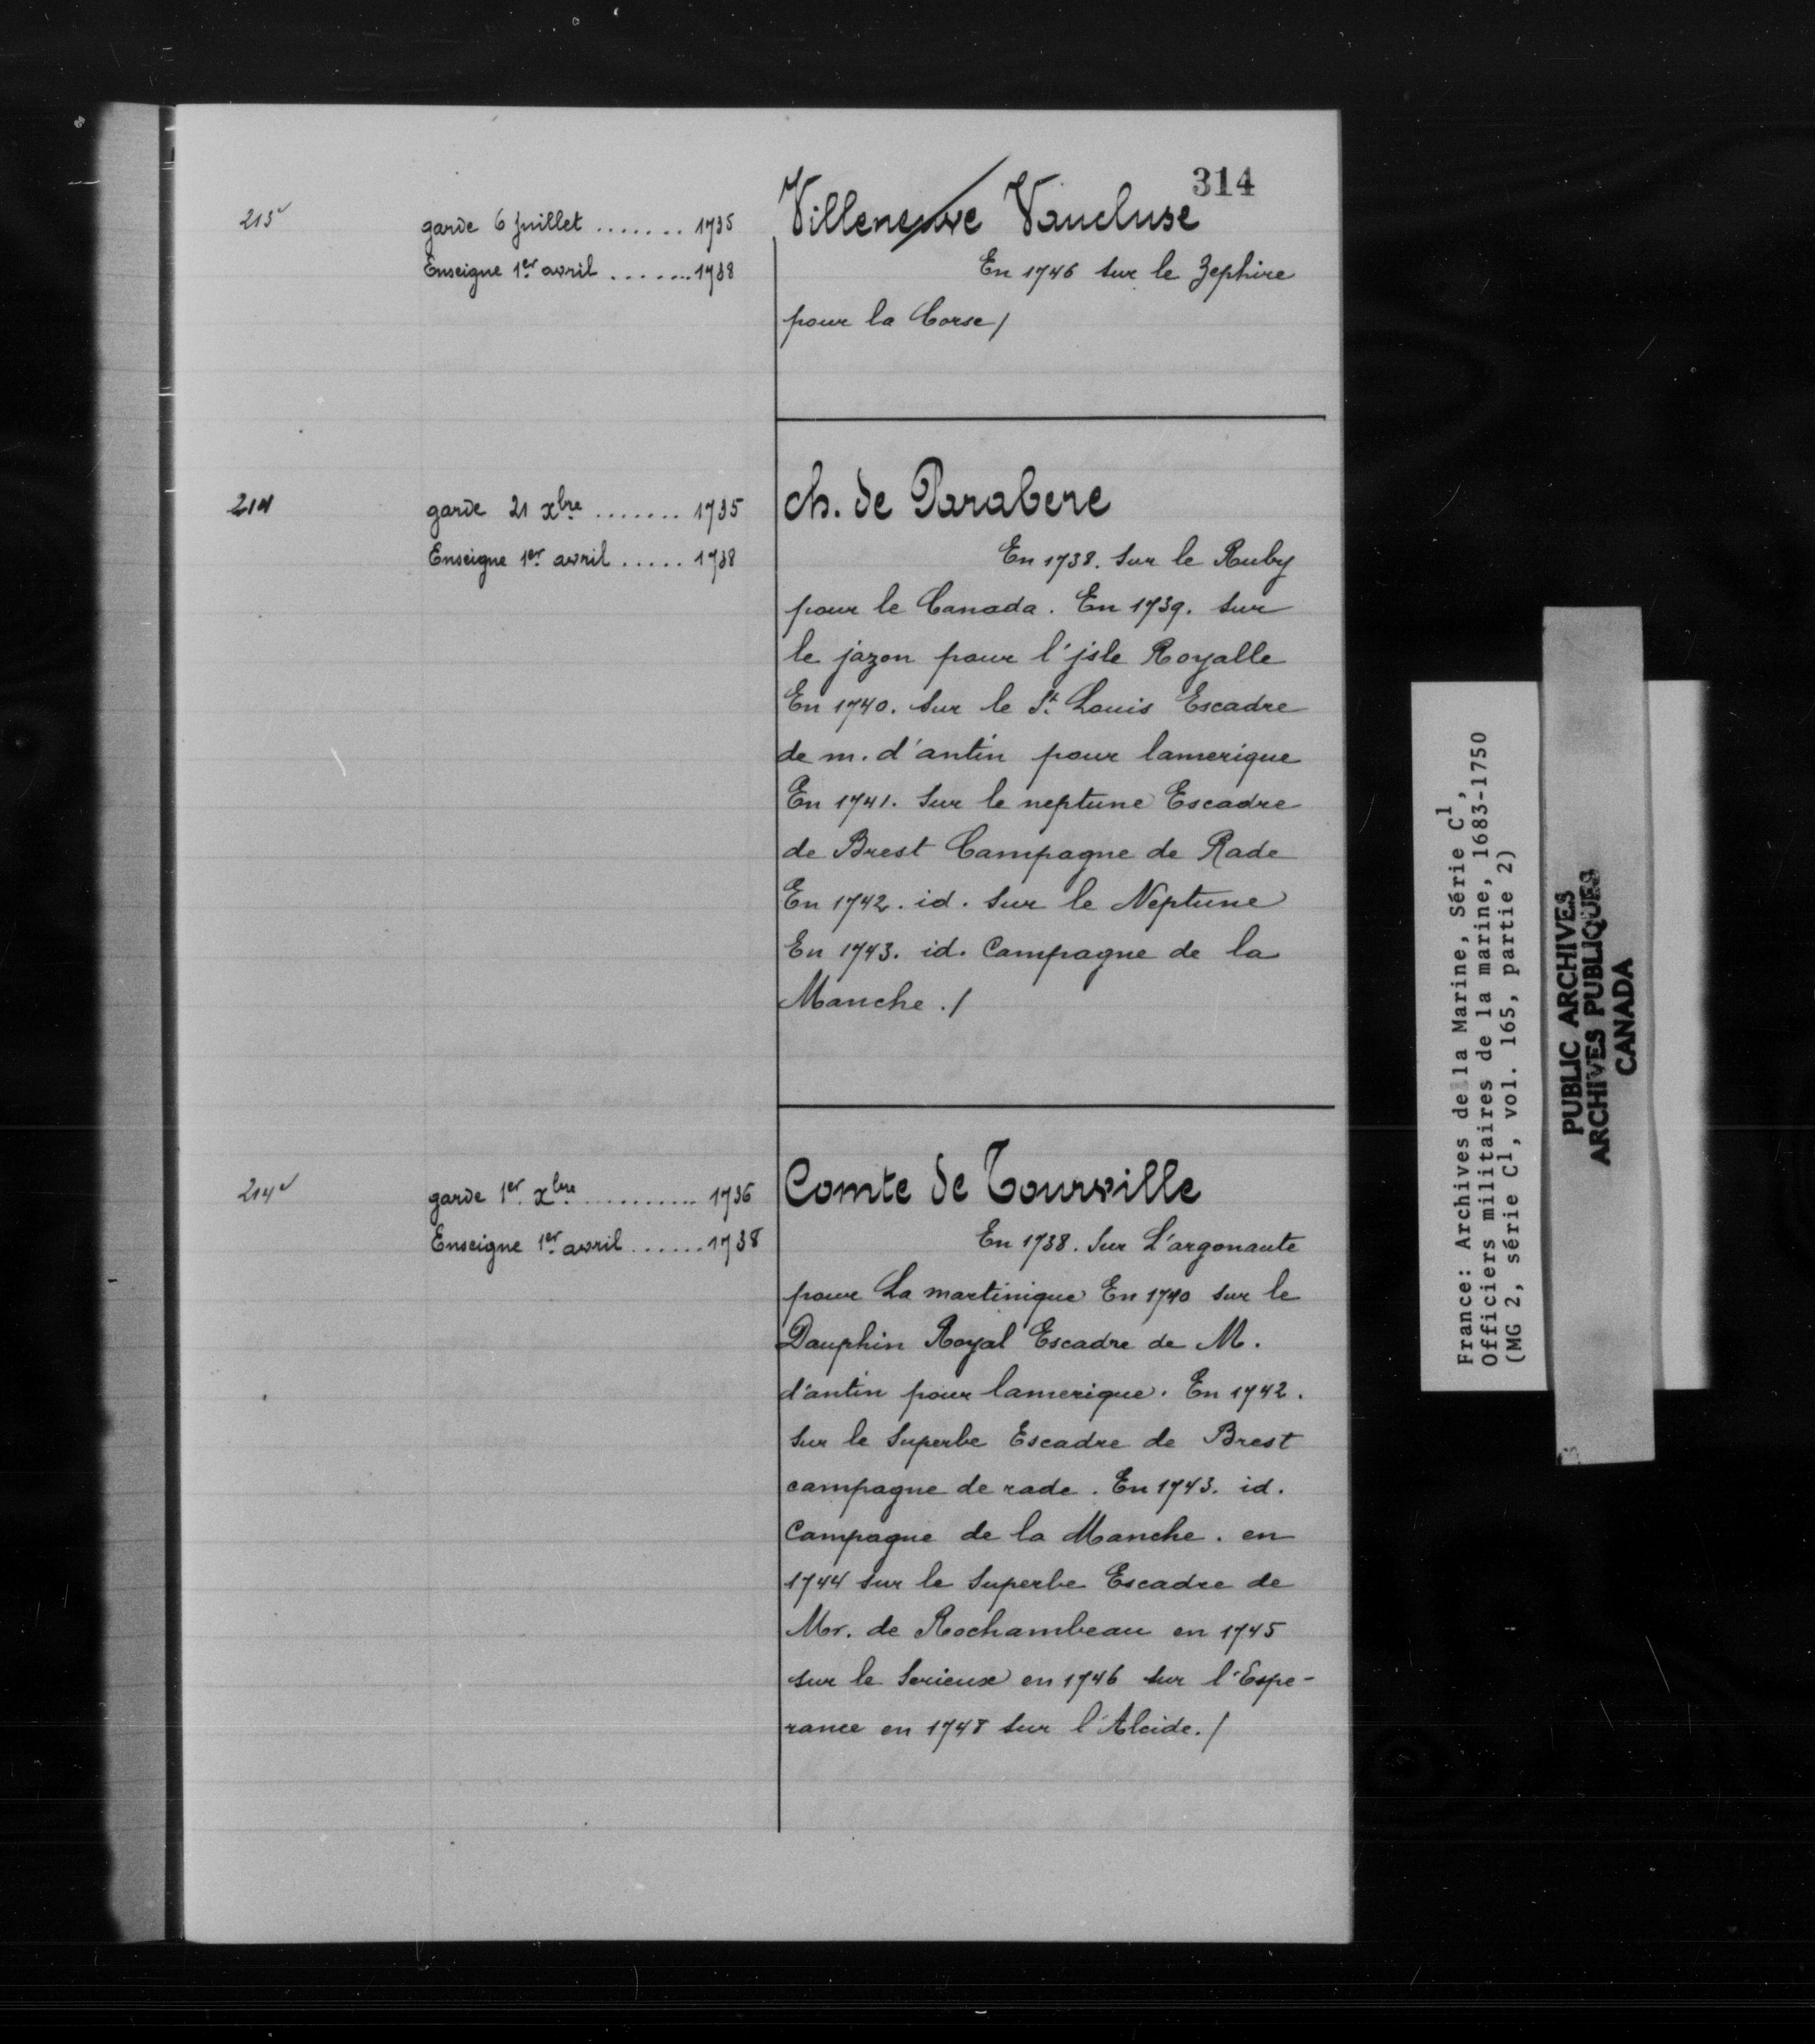 314
213v
garde 6 Juillet ....... 1735
Enseigne 1er avril ....... 1738
Villeneuve Vaucluse
En 1746 sur le Zephire
pour la Corse /
214
garde 21 xbre ....... 1735
Enseigne 1er avril ..... 1738
ch. de Parabere
En 1738. Sur le Ruby
pour le Canada. En 1739. sur
le jazon pour l'jsle Royalle
En 1740. sur le St. Louis Escadre
de m. d'antin pour lamerique
En 1741. Sur le neptune Escadre
de Brest Campagne de Rade
En 1742. id. Sur le Neptune
En 1743. id. Campagne de la
Manche ./
214v
garde 1er xbre ........... 1736
Enseigne 1er avril ...... 1738
Comte de Tourville
En 1738. Sur L'argonaute
pour La martinique En 1740 sur le
Dauphin Royal Escadre de M.
d'antin pour lamerique. En 1742.
Sur le Superbe Escadre de Brest
campagne de rade. En 1743. id.
Campagne de la Manche. en
1744 sur le Superbe Escadre de
Mr. de Rochambeau en 1745
sur le Serieux en 1746 sur l'Espe-
rance en 1748 sur l'Alcide./
France: Archives de la Marine, Série C1,
Officiers militaires de la marine, 1683-1750
(MG 2, série C1, vol. 165, partie 2)
PUBLIC ARCHIVES
ARCHIVES PUBLIQUES
CANADA